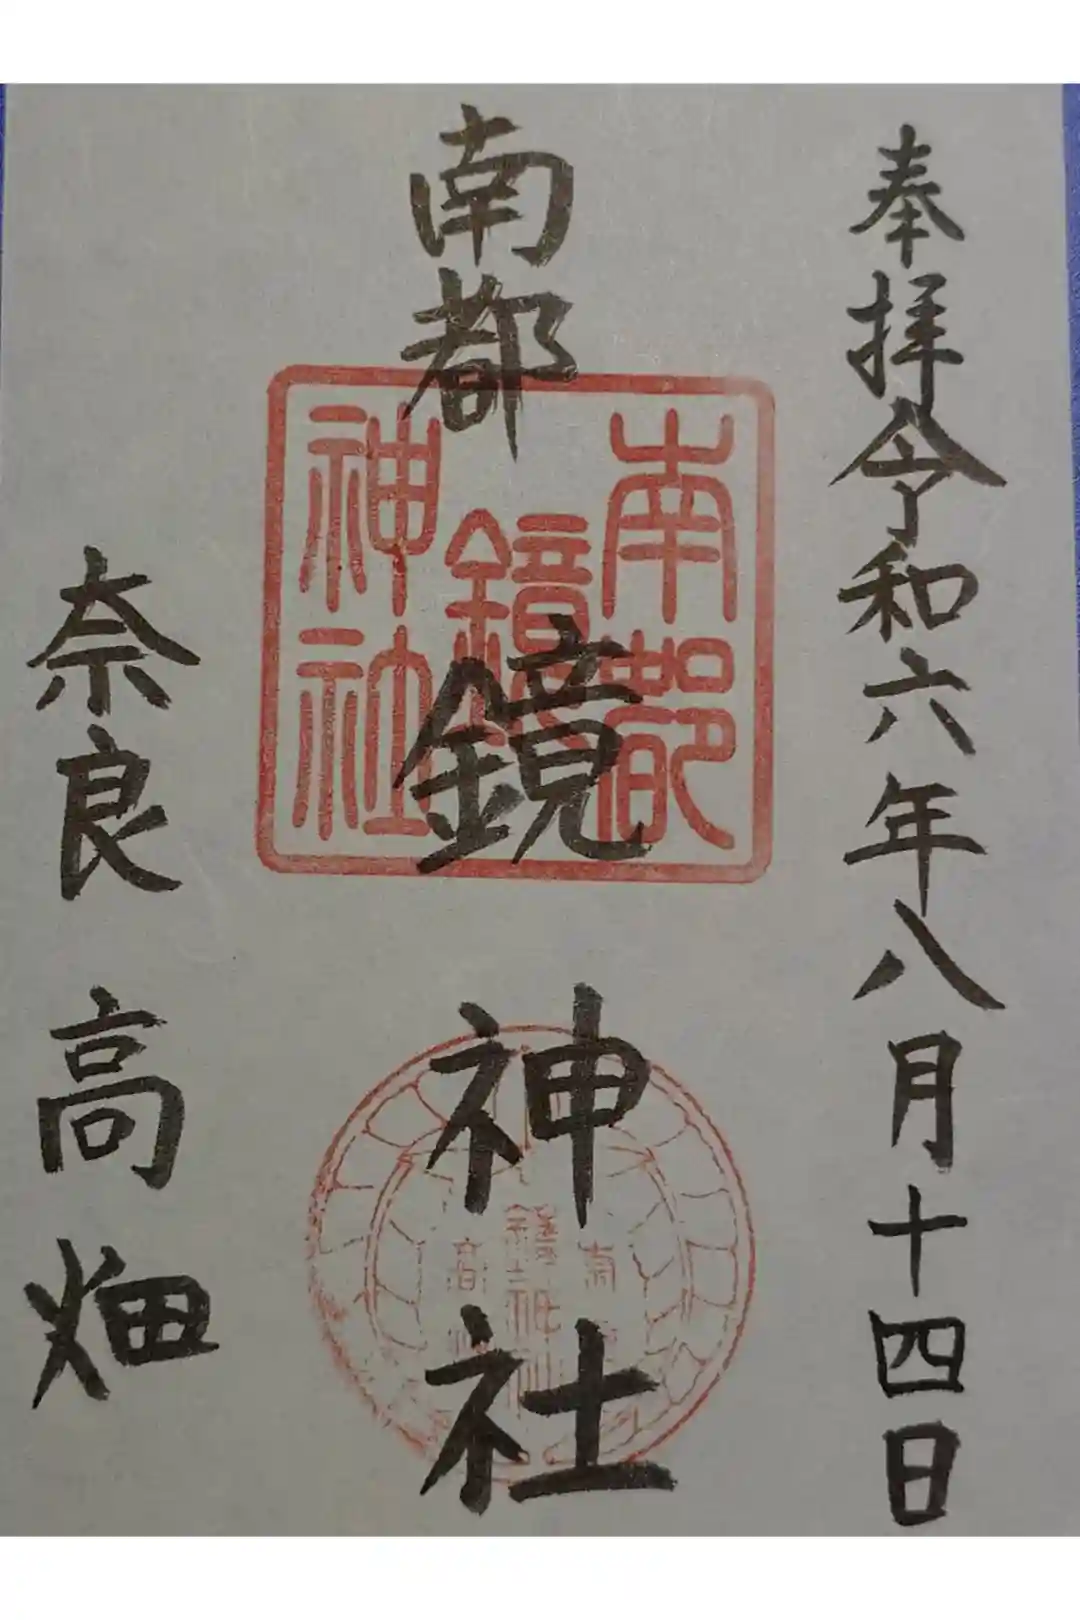 奉拝令和六年八月十四日
南都鏡神社
奈良高畑
南都
鏡
神社